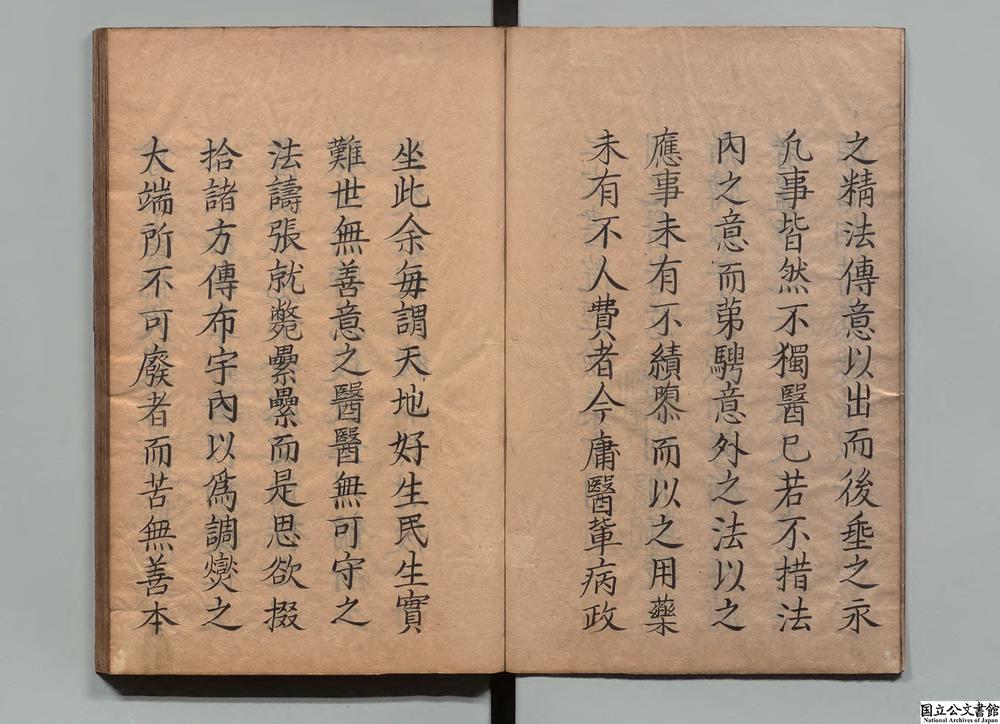 之精法傳意以出而後垂之永
凡事皆然不獨醫已若不措法
內之意而第騁意外之法以之
應事未有不績隳而以之用藥
未有不人費者今庸醫輩病政
坐此余每謂天地好生民生實
難世無善意之醫醫無可守之
法譸張就斃纍纍而是思欲掇
拾諸方傳布宇內以爲調爕之
大端所不可廢者而苦無善本
国立公文書館
National Archives of Japan